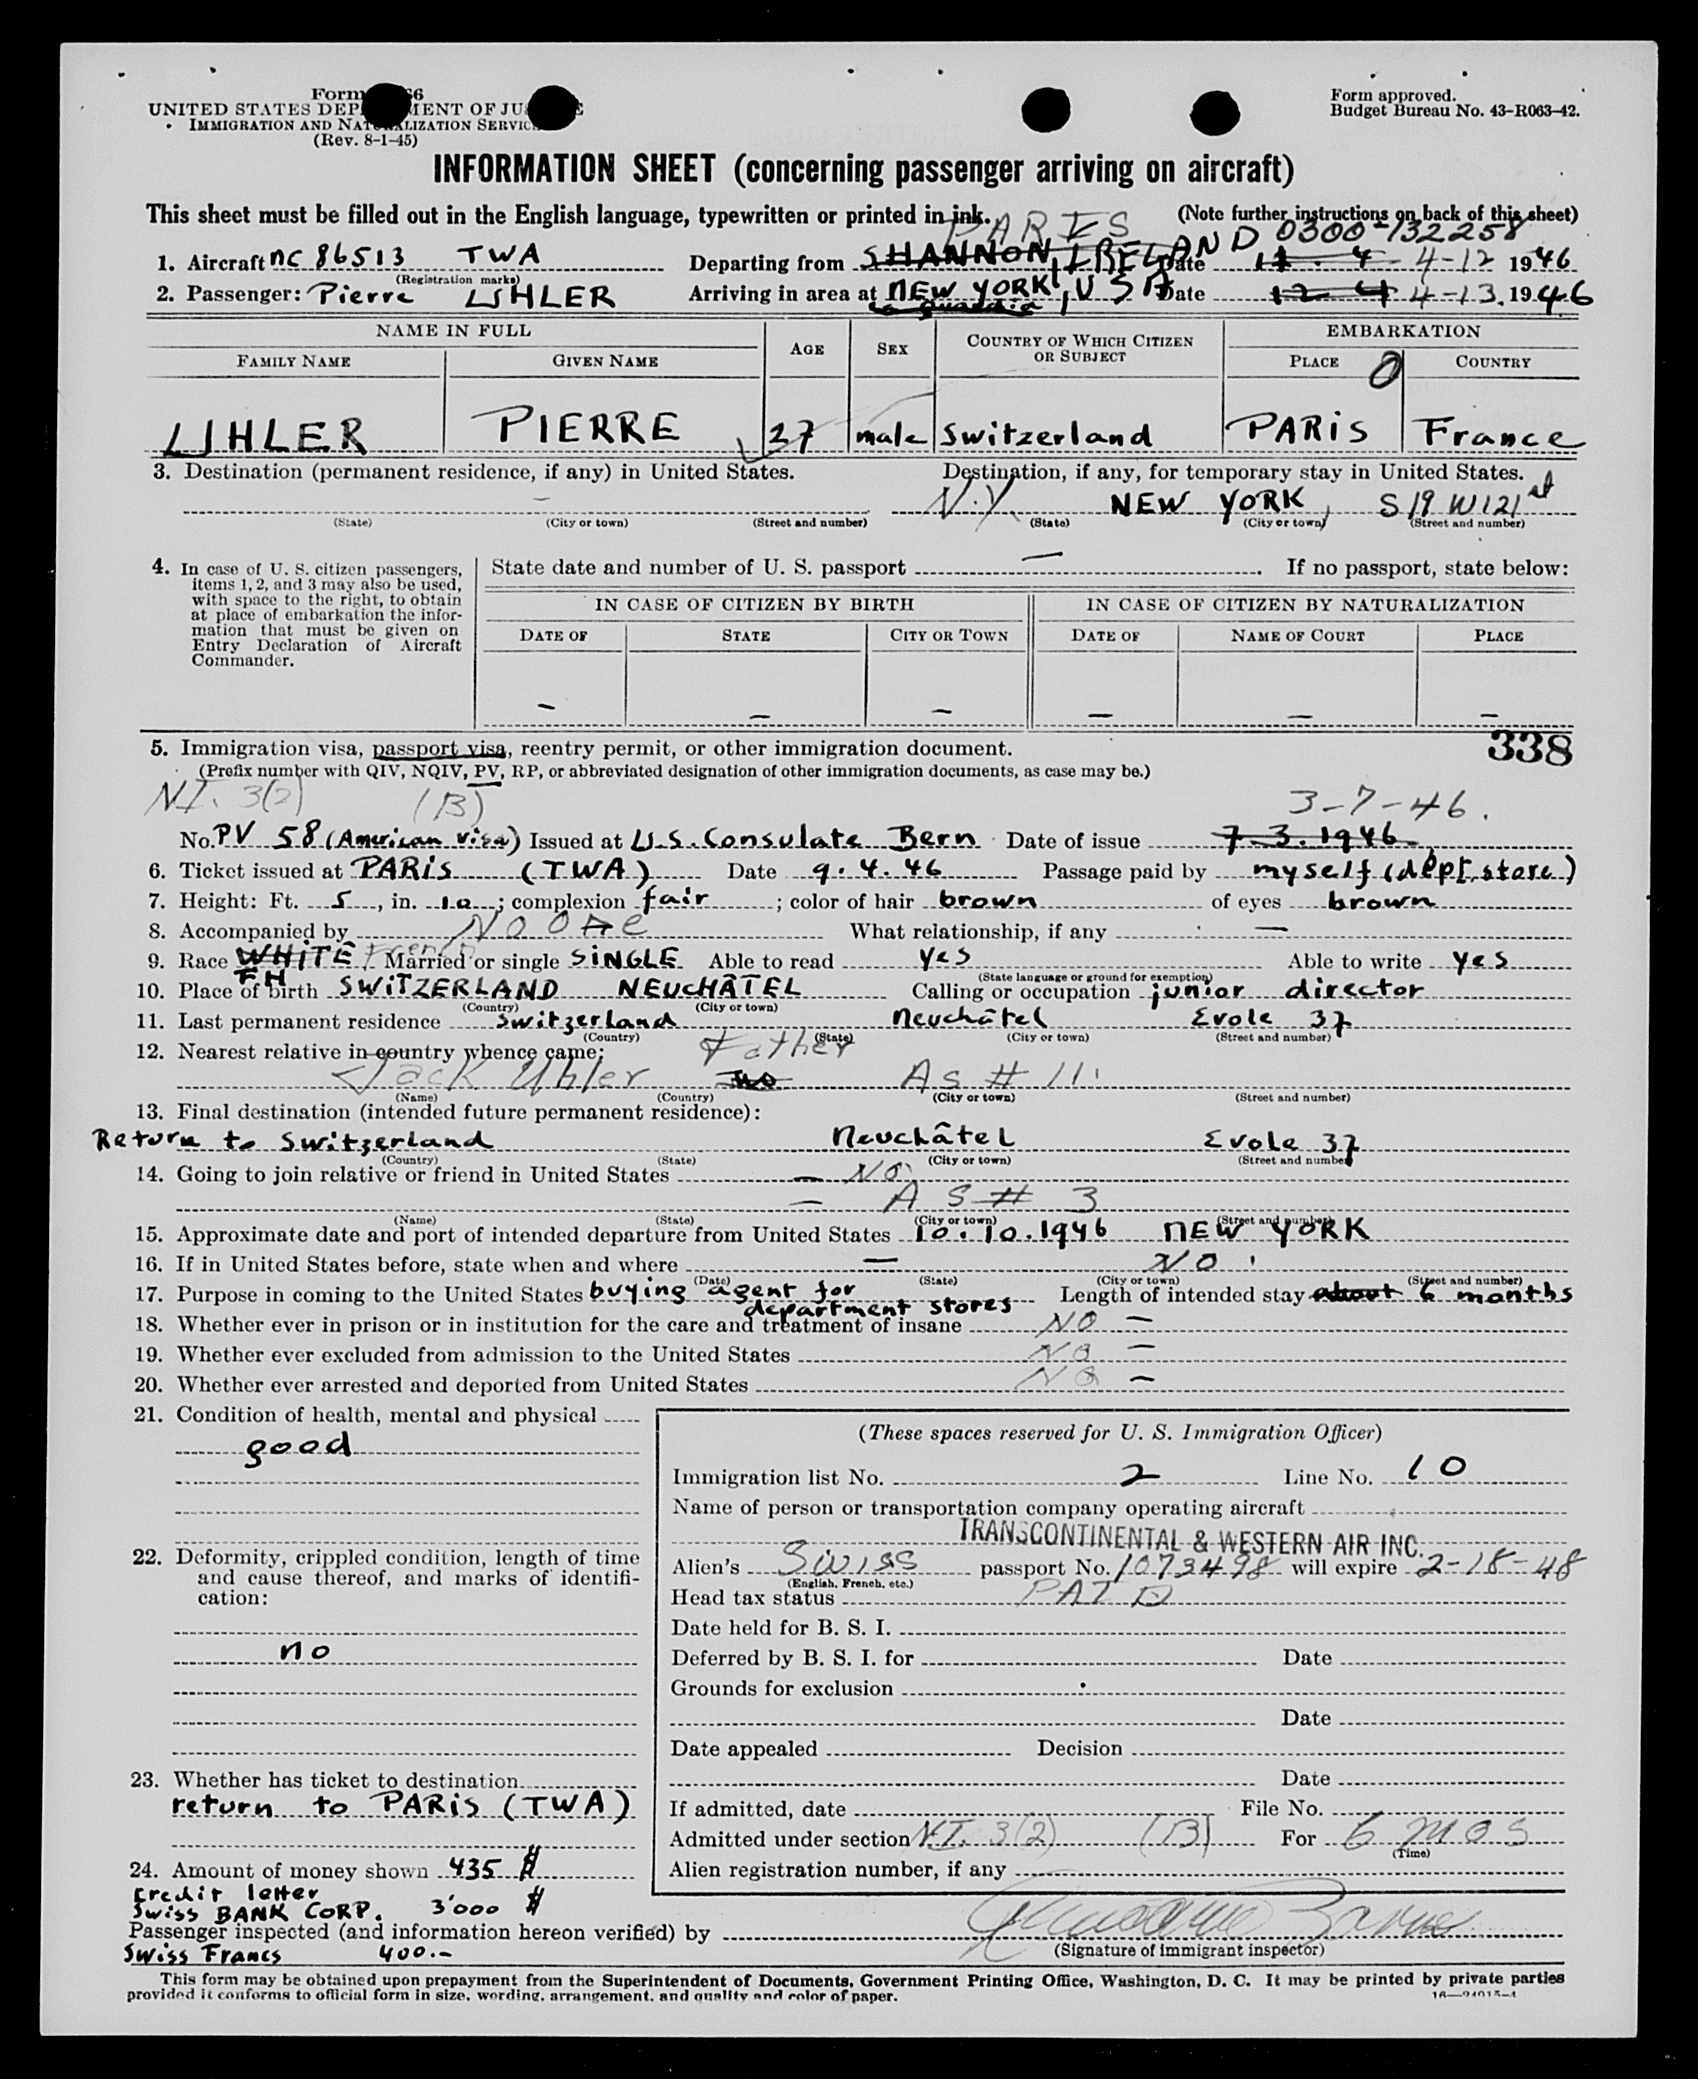 Form 66
UNITED STATES DEP MENT OF JUS E
IMMIGRATION AND NATURALIZATION SERVIC
(Rev. 8-1-45)
Form approved.
Budget Bureau No. 43-R063-42.
INFORMATION SHEET (concerning passenger arriving on aircraft)
This sheet must be filled out in the English language, typewritten or printed in ink. (Note further instructions on back of this sheet)
PARIS 0300-132258
1. Aircraft NC 86513 TWA Departing from SHANNON, IRELAND Date 11. 4 4-12 1946
(Registration marks)
2. Passenger: Pierre UHLER Arriving in area at NEW YORK, USA Date 12 4 4-13. 1946
La guardia
NAME IN FULL AGE SEX COUNTRY OF WHICH CITIZEN OR SUBJECT EMBARKATION
FAMILY NAME GIVEN NAME PLACE COUNTRY
0
UHLER PIERRE 27 male Switzerland PARIS France
3. Destination (permanent residence, if any) in United States. Destination, if any, for temporary stay in United States.
— N.Y. NEW YORK, 519 W 121 st
(State) (City or town) (Street and number) (State) (City or town) (Street and number)
4. In case of U. S. citizen passengers, items 1, 2, and 3 may also be used, with space to the right, to obtain at place of embarkation the information that must be given on Entry Declaration of Aircraft Commander.
State date and number of U. S. passport — If no passport, state below:
IN CASE OF CITIZEN BY BIRTH IN CASE OF CITIZEN BY NATURALIZATION
DATE OF STATE CITY OR TOWN DATE OF NAME OF COURT PLACE
— — — — — —
5. Immigration visa, passport visa, reentry permit, or other immigration document. 338
(Prefix number with QIV, NQIV, PV, RP, or abbreviated designation of other immigration documents, as case may be.)
N.I. 3(2) (B) 3-7-46.
No. PV 58 (American visa) Issued at U.S. Consulate Bern Date of issue 7. 3. 1946
6. Ticket issued at PARIS (TWA) Date 9. 4. 46 Passage paid by myself (dept. store)
7. Height: Ft. 5, in. 10; complexion fair; color of hair brown of eyes brown
8. Accompanied by NO ONE What relationship, if any —
9. Race WHITE French Married or single SINGLE Able to read yes Able to write yes
FH (State language or ground for exemption)
10. Place of birth SWITZERLAND NEUCHÂTEL Calling or occupation junior director
(Country) (City or town)
11. Last permanent residence Switzerland Neuchâtel Evole 37
(Country) (State) (City or town) (Street and number)
12. Nearest relative in country whence came: Father
Jack Uhler no As # 11
(Name) (Country) (City or town) (Street and number)
13. Final destination (intended future permanent residence):
Return to Switzerland Neuchâtel Evole 37
(Country) (State) (City or town) (Street and number)
14. Going to join relative or friend in United States — NO
— AS # 3
(Name) (State) (City or town) (Street and number)
15. Approximate date and port of intended departure from United States 10. 10. 1946 NEW YORK
16. If in United States before, state when and where — NO
(Date) (State) (City or town) (Street and number)
17. Purpose in coming to the United States buying agent for department stores Length of intended stay about 6 months
18. Whether ever in prison or in institution for the care and treatment of insane NO —
19. Whether ever excluded from admission to the United States NO —
20. Whether ever arrested and deported from United States NO —
21. Condition of health, mental and physical
good
22. Deformity, crippled condition, length of time and cause thereof, and marks of identification:
no
23. Whether has ticket to destination
return to PARIS (TWA)
24. Amount of money shown 435 $
Credit letter
Swiss BANK CORP. 3'000 $
(These spaces reserved for U. S. Immigration Officer)
Immigration list No. 2 Line No. 10
Name of person or transportation company operating aircraft
TRANSCONTINENTAL & WESTERN AIR INC.
Alien's Swiss passport No. 1073498 will expire 2-18-48
(English, French, etc.)
Head tax status PAID
Date held for B. S. I.
Deferred by B. S. I. for Date
Grounds for exclusion
Date
Date appealed Decision
Date
If admitted, date File No.
Admitted under section N.I. 3(2) (B) For 6 mos
(Time)
Alien registration number, if any
Passenger inspected (and information hereon verified) by
Swiss Francs 400.—
(Signature of immigrant inspector)
This form may be obtained upon prepayment from the Superintendent of Documents, Government Printing Office, Washington, D. C. It may be printed by private parties
provided it conforms to official form in size, wording, arrangement, and quality and color of paper.